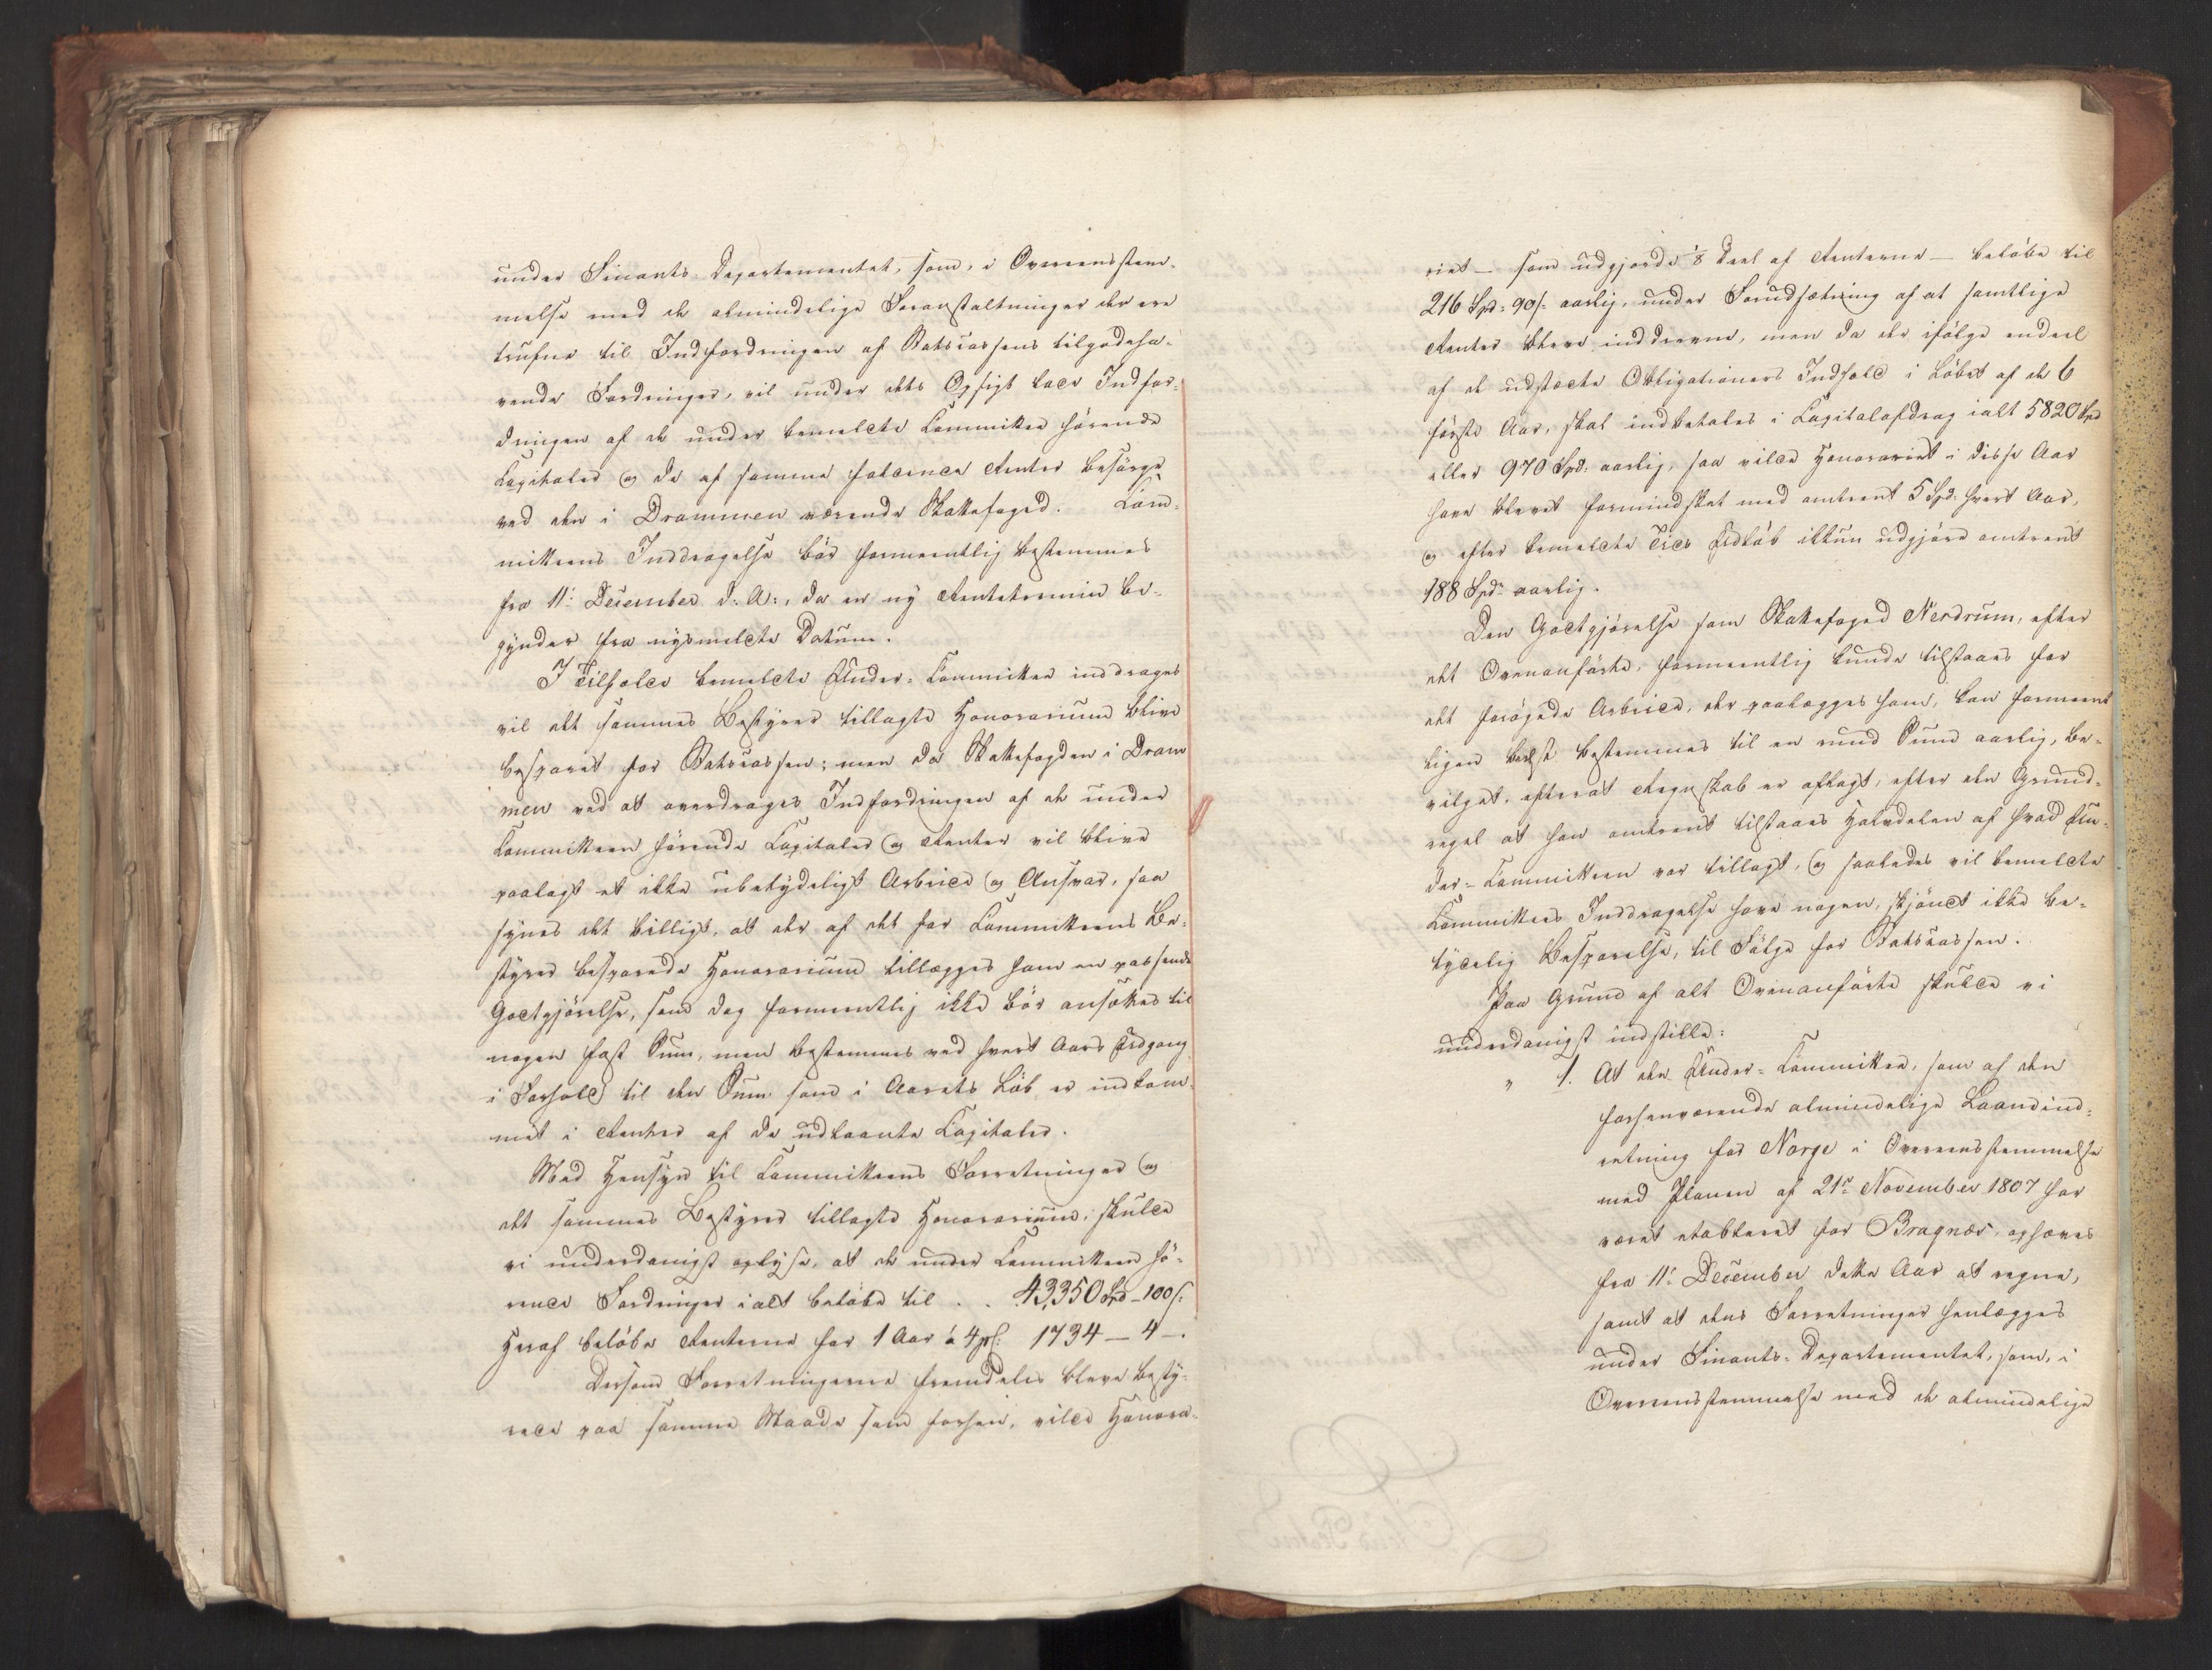 under Finants-Departementet, som, i Overeensstem-
melse med de almindelige Foranstaltninger der ere
trufne til Indfordringen af Statscassens tilgodeha-
vende Fordringer, vil under dets Opsigt lade Indfor-
dringen af de under bemeldte Committee hørende
Capitaler og de af samme faldende Renter besørge
ved den i Drammen værende Skattefoged. Com-
mitteens Inddragelse bør formeentlig bestemmes
fra 11: December d: A:, da en ny Rentetermin be-
gynder fra nysmeldte Datum.
I Tilfælde bemeldte Under-Committee inddrages
vil det sammes Bestyrer tillagte Honorarium blive
besparet for Statscassen; men da Skattefogden i Dram
men ved at overdrages Indfordringen af de under
Committeen hørende Capitaler og Renter vil blive
paalagt et ikke ubetydeligt Arbeide og Ansvar, saa
synes det billigt, at der af det for Committeens Be-
styrer besparede Honorarium tillægges ham en passende
Godtgjørelse, som dog formeentlig ikke bør ansættes til
nogen fast Sum, men bestemmes ved hvert Aars Udgang
i Forhold til den Sum som i Aarets Løb er indkom-
met i Renter af de udlaante Capitaler.
Med Hensyn til Committeens Forretninger og
det sammes Bestyrer tillagte Honorarium, skulde
vi underdanigst oplyse, at de under Committeen hø-
rende Fordringer i alt beløbe til . . 43,350 Spd - 100 s:
Heraf beløbe Renterne for 1 Aar à 4 pC: 1734 - 4 -.
Dersom Forretningerne fremdeles bleve besty-
rede paa samme Maade som forhen, vilde Honora-
riet - som udgjorde 1/8 Deel af Renterne - beløbe til
216 Spd: 90 s: aarlig, under Forudsætning af at samtlige
Renter bleve inddrevne, men da der ifølge endeel
af de udstædte Obligationers Indhold i Løbet af de 6
første Aar, skal indbetales i Capitalafdrag ialt 5820 Spd
eller 970 Spd: aarlig, saa vilde Honorariet i disse Aar
have blevet formindsket med omtrent 5 Spd: hvert Aar,
og efter bemeldte Tids Udløb ikkun udgjøre omtrent
188 Spd: aarlig.
Den Godtgjørelse som Skattefoged Nerdrum, efter
det Ovenanførte, formeentlig kunde tilstaaes for
det forøgede Arbeide, der paalægges ham, kan formeent
ligen bedst bestemmes til en rund Sum aarlig, be-
vilget, efterat Regnskab er aflagt, efter den Grund-
regel at han omtrent tilstaaes Halvdelen af hvad Un-
der-Committeen var tillagt, og saaledes vil bemeldte
Committees Inddragelse have nogen, skjøndt ikke be-
tydelig Besparelse, til Følge for Statscassen.
Paa Grund af alt Ovenanførte skulde vi
underdanigst indstille:
" 1. At den Under-Committee, som af den
forhenværende almindelige Laaneind-
retning for Norge i Overeensstemmelse
med Planen af 21de November 1807 har
været etableret for Bragnæs, ophæves
fra 11: December dette Aar at regne,
samt at dens Forretninger henlægges
under Finants-Departementet, som, i
Overeensstemmelse med de almindelige